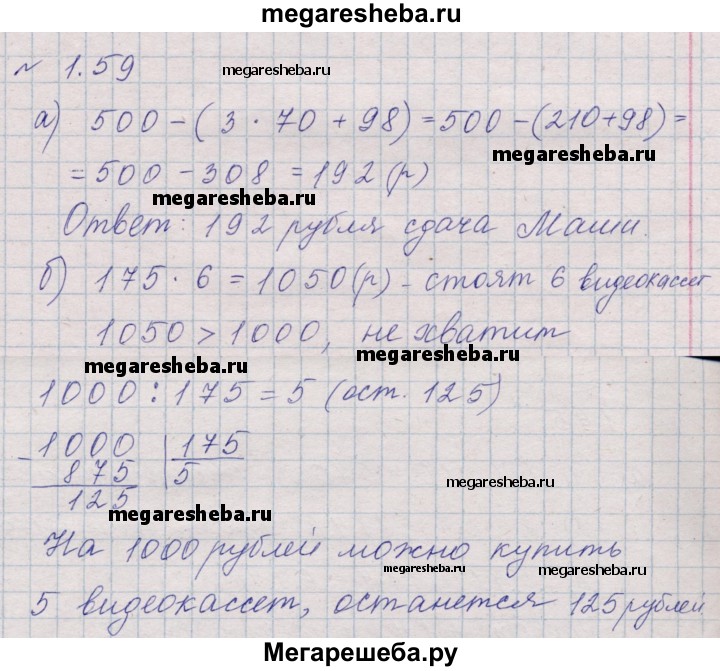 megaresheba.ru
№ 1.59
megaresheba.ru
а) 500 - (3 · 70 + 98) = 500 - (210 + 98) =
megaresheba.ru
= 500 - 308 = 192 (р)
megaresheba.ru
Ответ: 192 рубля сдача Маши.
б) 175 · 6 = 1050 (р) - стоят 6 видеокассет
1050 > 1000, не хватит
megaresheba.ru
megaresheba.ru
1000 : 175 = 5 (ост. 125)
- 1000 | 175
875 | 5
125
megaresheba.ru
megaresheba.ru
На 1000 рублей можно купить
megaresheba.ru
megaresheba.ru
5 видеокассет, останется 125 рублей
Мегарешеба.ру